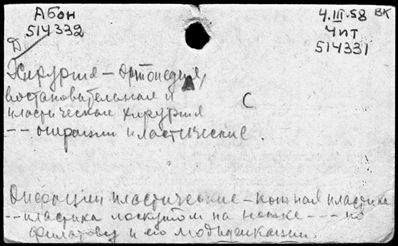 Абон
514332
4.III.58 ВК
Чит
514331
Д
Хирургия – Ортопедия,
востановительная и
пластическая хирургия
С
-- операции пластические.
Операции пластические – кожная пластика
-- пластика лоскутом на ножке --- по
Филатову и его модификации.